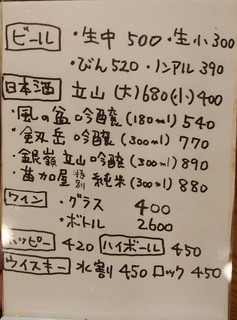 ビール ・生中 500 ・生小 300
・びん 520 ・ノンアル 390
日本酒 立山 (大) 680 (小) 400
・風の盆 吟醸 (180ml) 540
・剱岳 吟醸 (300ml) 770
・銀嶺立山 吟醸 (300ml) 890
・苗加屋 特別 純米 (300ml) 880
ワイン ・グラス 400
・ボトル 2600
ホッピー 420 ハイボール 450
ウイスキー 水割 450 ロック 450